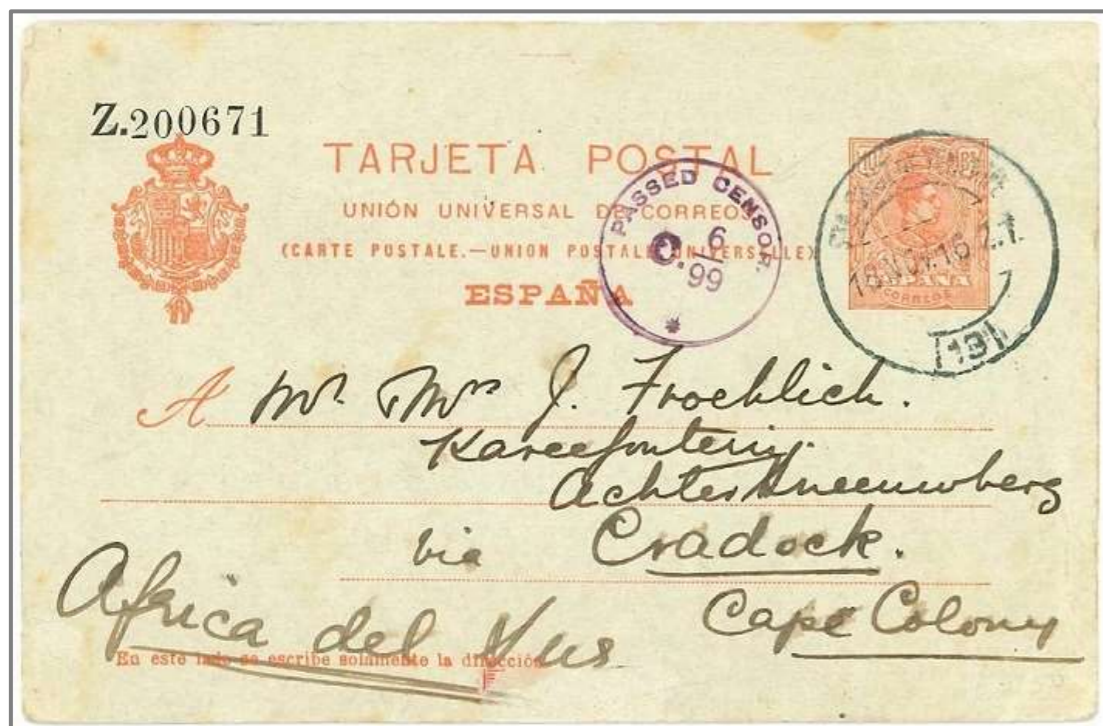 Z.200671
TARJETA POSTAL
UNIÓN UNIVERSAL DE CORREOS
(CARTE POSTALE.—UNION POSTALE UNIVERSELLE)
ESPAÑA
PASSED CENSOR.
6
C.99
10 10
16 NOV.16
ESPAÑA
CORREOS
(13)
A Mr & Mrs J. Froehlich.
Kareefontein
Achter Sneeuwberg
via Cradock.
Cape Colony
Africa del Sus
En este lado se escribe solamente la dirección